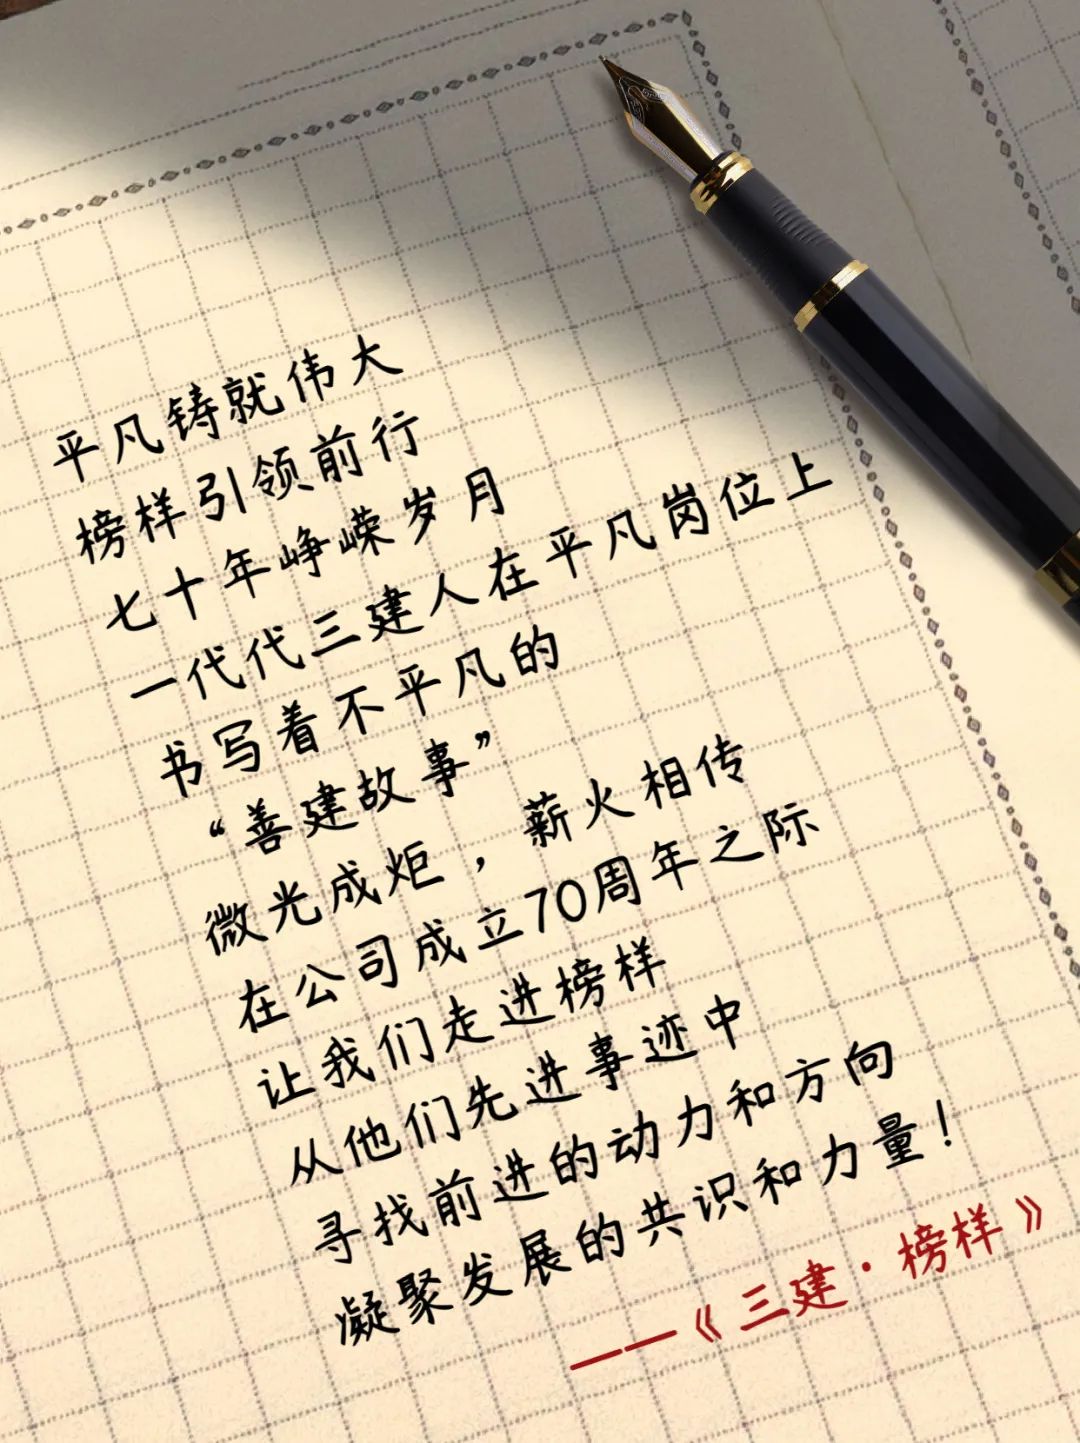 平凡铸就伟大
榜样引领前行
七十年峥嵘岁月
一代代三建人在平凡岗位上
书写着不平凡的
“善建故事”
微光成炬，薪火相传
在公司成立70周年之际
让我们走进榜样
从他们先进事迹中
寻找前进的动力和方向
凝聚发展的共识和力量！
——《三建·榜样》